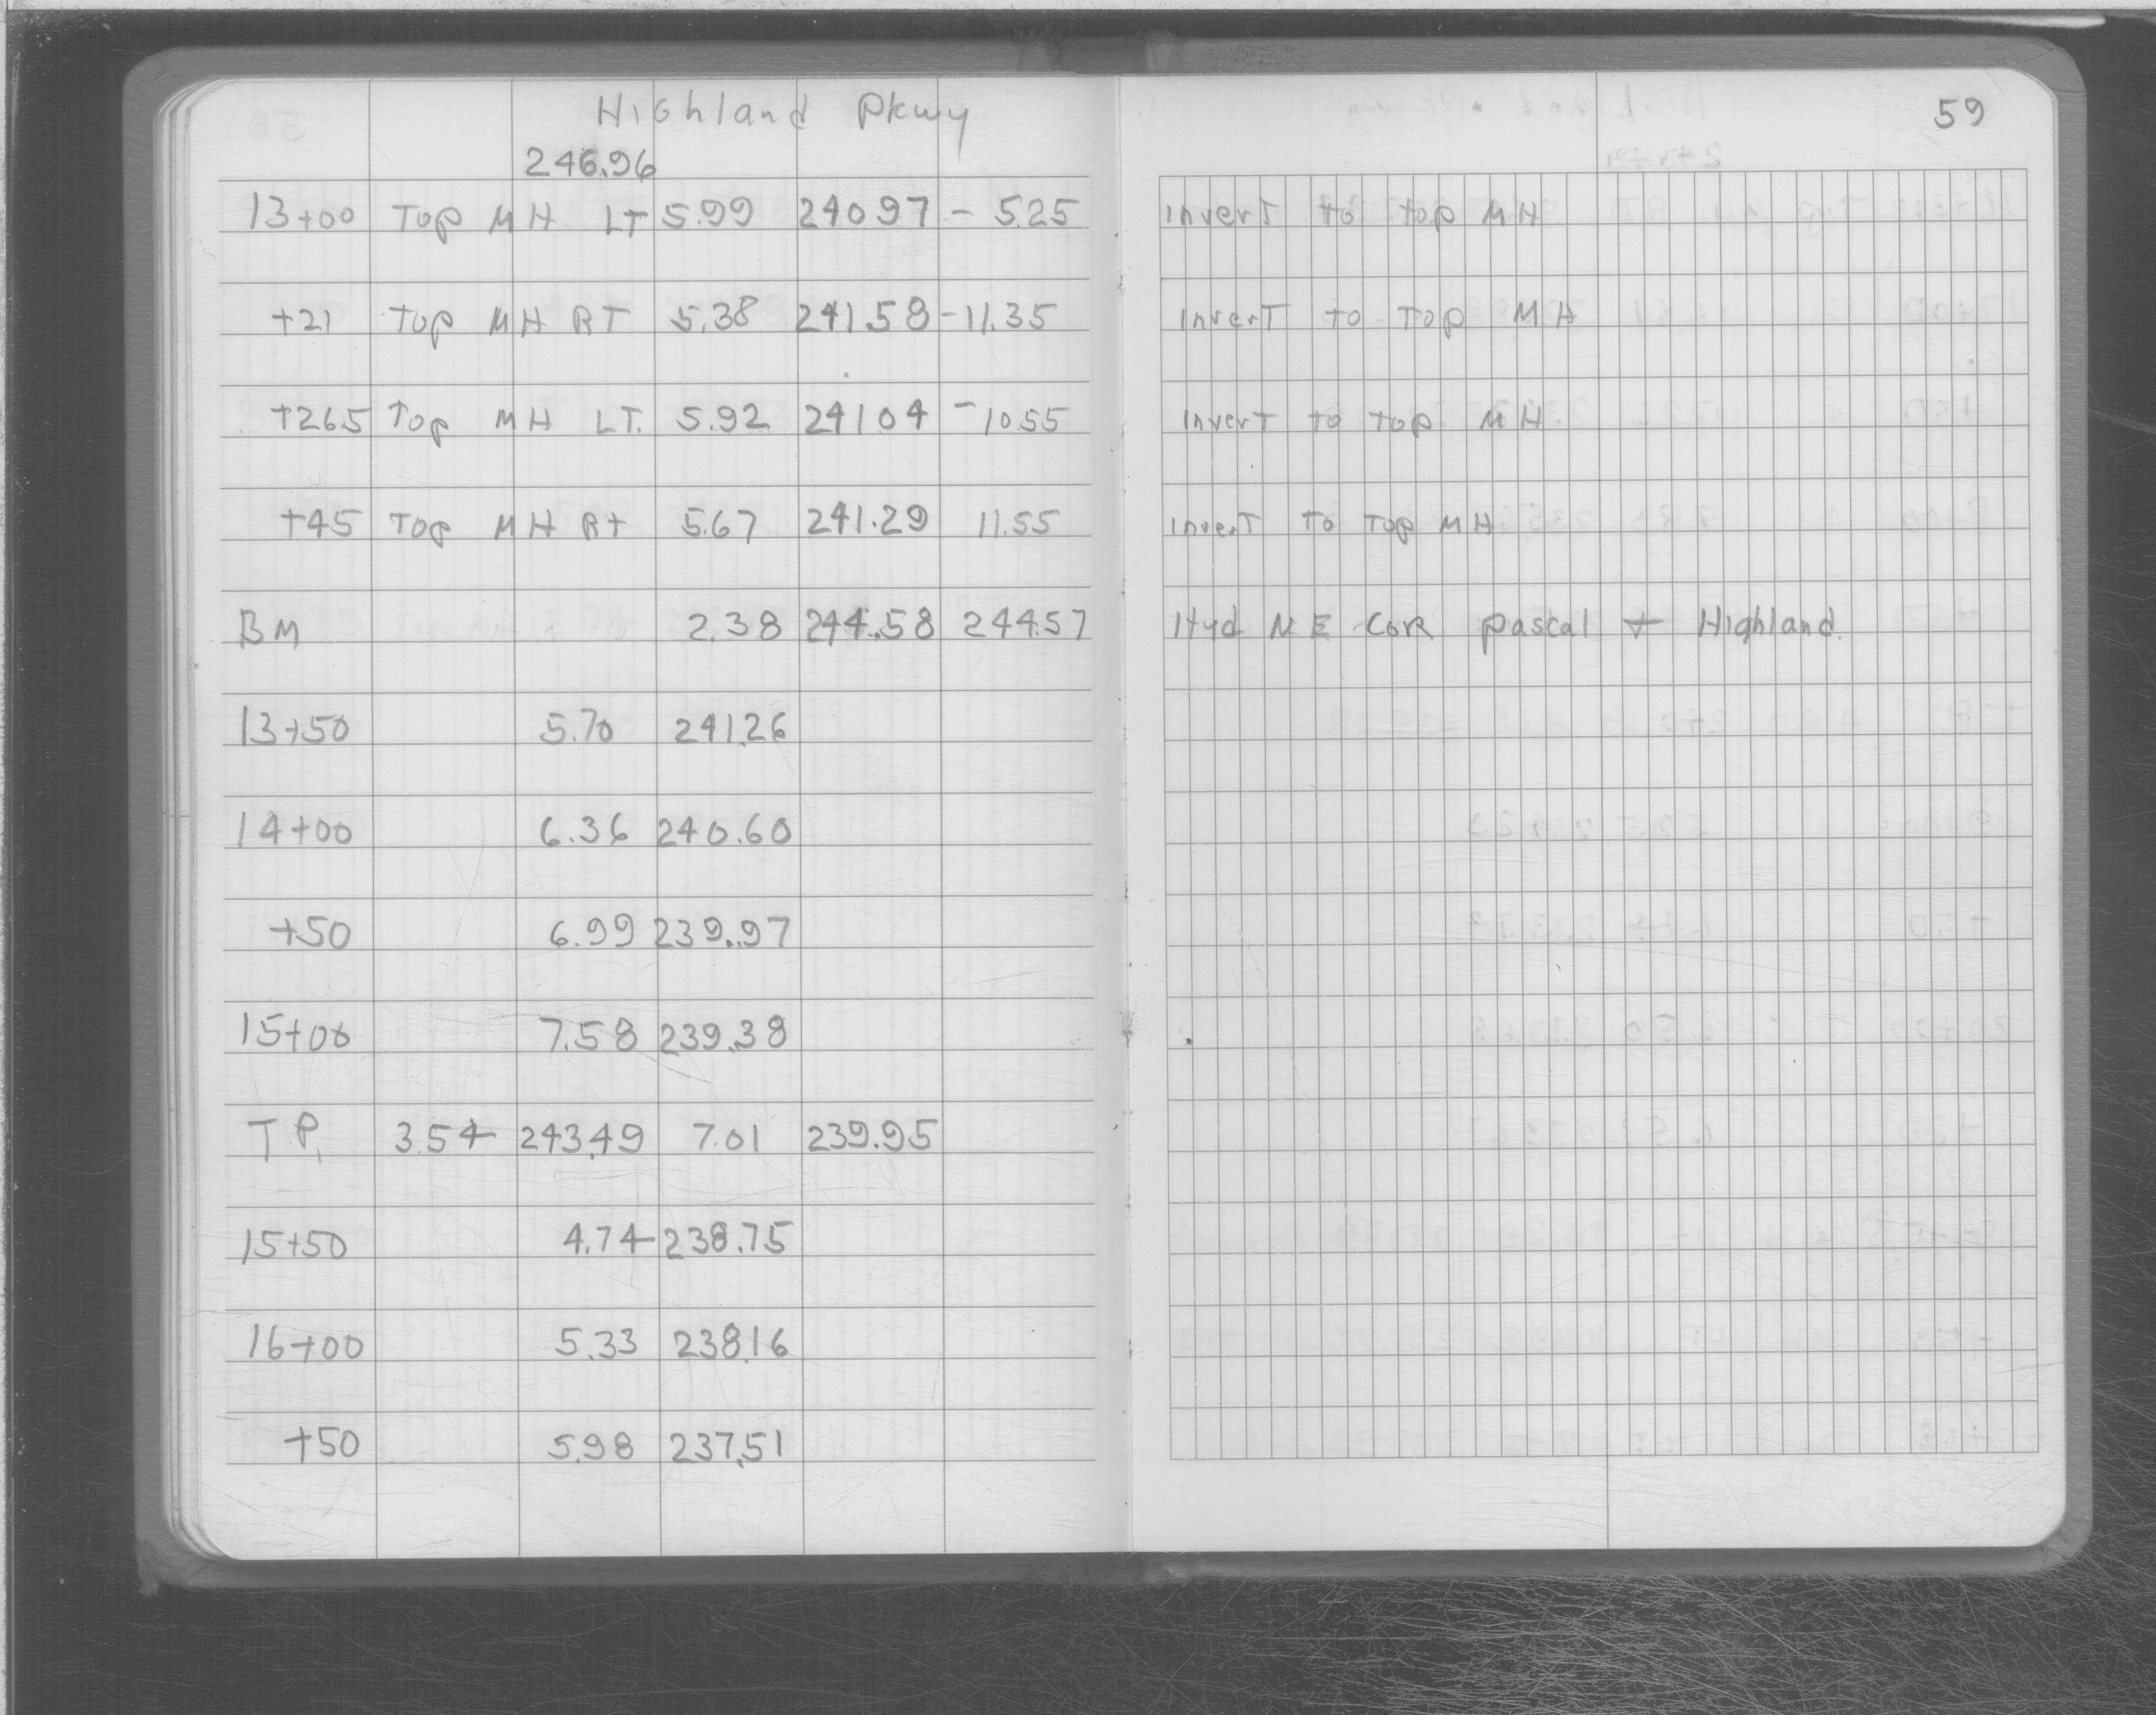 Highland Pkwy
59
246.96
13+00 Top MH LT 5.99 240 97 - 5.25 Invert to top MH
+21 Top MH RT 5.38 241.58 - 11.35 Invert to Top MH
+265 Top MH LT. 5.92 241 04 - 10.55 Invert to top MH
+45 Top MH Rt 5.67 241.29 11.55 Invert to Top MH
BM 2.38 244.58 244.57 Hyd NE Cor Pascal + Highland.
13+50 5.70 241.26
14+00 6.36 240.60
+50 6.99 239.97
15+00 7.58 239.38
T P. 3.54 243.49 7.01 239.95
15+50 4.74 238.75
16+00 5.33 238.16
+50 5.98 237.51